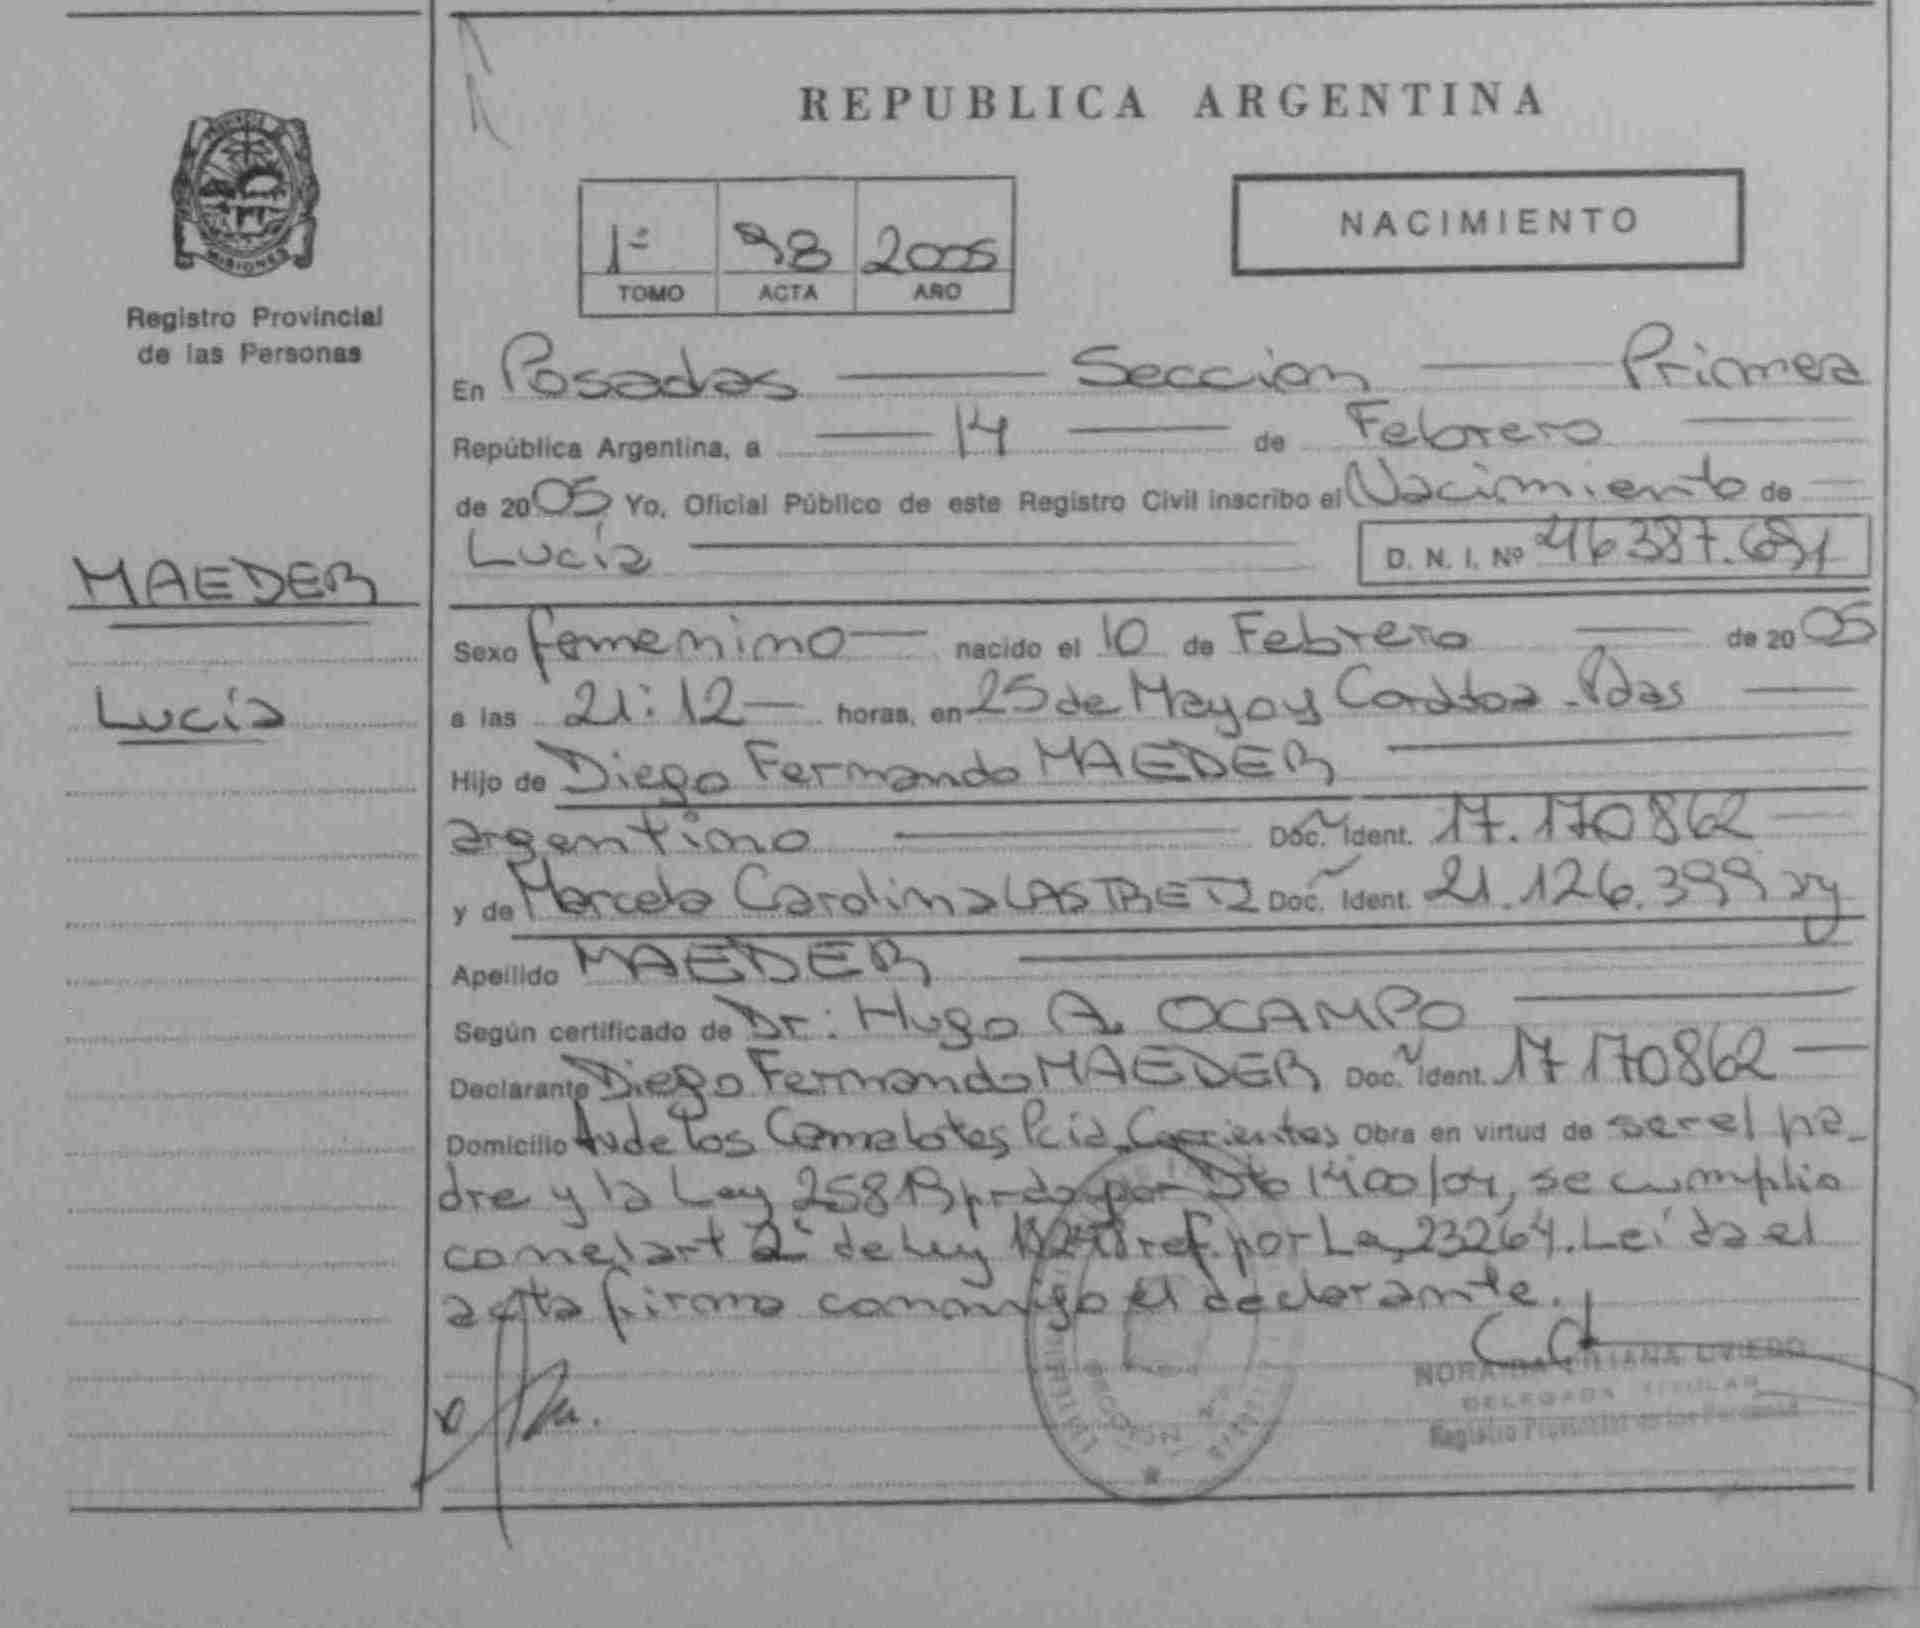 REPUBLICA ARGENTINA
MISIONES
Registro Provincial
de las Personas
NACIMIENTO
1º 98 2005
TOMO ACTA AÑO
En Posadas Seccion Primera
República Argentina, a 14 de Febrero
de 2005 Yo, Oficial Público de este Registro Civil inscribo el Nacimiento de
Lucía D. N. I. Nº 46387.691
MAEDER
Lucía
Sexo femenino nacido el 10 de Febrero de 2005
a las 21:12 horas, en 25 de Mayo y Cordoba - Pdas
Hijo de Diego Fernando MAEDER
argentino Doc. Ident. 17.170862
y de Marcela Carolina LASTRETZ Doc. Ident. 21.126.399
Apellido MAEDER
Según certificado de Dr: Hugo A. OCAMPO
Declarante Diego Fernando MAEDER Doc. Ident. 17170862
Domicilio Av de los Camalotes Pcia Corrientes Obra en virtud de ser el pa-
dre y la Ley 25819 por Dto 1400/04, se cumplio
con el art 2º de Ley ref. por Ley 23264. Leída el
acta firma conmigo el declarante.
LILIANA OVIEDO
DELEGADA TITULAR
Registro Provincial de las Personas